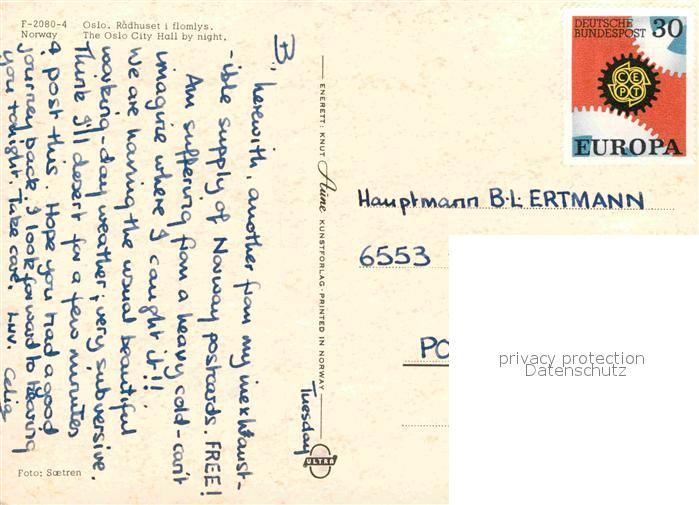 F-2080-4 Oslo. Rådhuset i flomlys.
Norway The Oslo City Hall by night.
DEUTSCHE
BUNDESPOST 30
CEPT
EUROPA
Tuesday
B.,
herewith, another from my inexhaust-
-ible supply of Norway postcards. FREE!
Am suffering from a heavy cold - can't
imagine where I caught it!!
We are having the usual beautiful
working-day weather; very subversive.
Think I'll desert for a few minutes
& post this. Hope you had a good
journey back. I look forward to hearing
you tonight. Take care. Luv. Celia
ENERETT: KNUT Aune KUNSTFORLAG - PRINTED IN NORWAY
ULTRA
Hauptmann B.L. ERTMANN
6553
PO
privacy protection
Datenschutz
Foto: Sætren